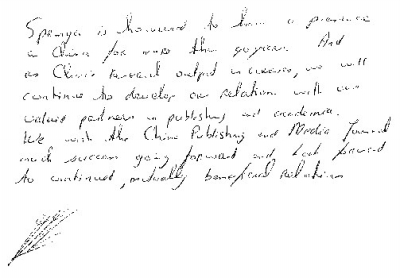 Springer is honoured to have a presence
in China for more than 30 years. And
as China's research output increases, we will
continue to develop our relations with our
valued partners in publishing and academia.
We wish the China Publishing and Media Journal
much success going forward and look forward
to continued, mutually beneficial relations